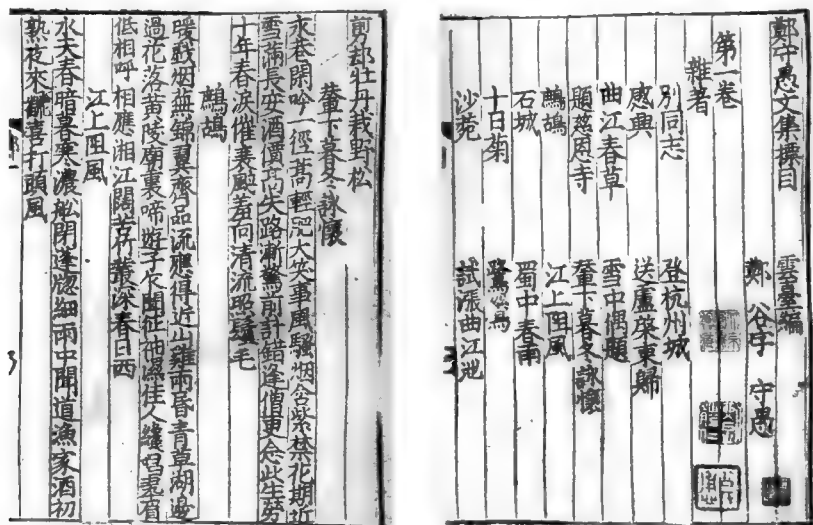 鄭守愚文集標目 雲臺編
鄭 谷字 守愚
第一卷
雜著
別同志 登杭州城
感興 送盧棨東歸
曲江春草 雪中偶題
題慈恩寺 輦下暮冬詠懷
鷓鴣 江上阻風
石城 蜀中春雨
十日菊 鷺鷥
沙苑 試漲曲江池
剪却牡丹栽野松
輦下暮冬詠懷
永巷閑吟一徑髙輕肥大笑事風騷烟含紫禁花期近
雪滿長安酒價高失路漸驚前計錯逢僧更念此生勞
十年春淚催衰颯羞向清流照鬢毛
鷓鴣
暖戲烟蕪錦翼齊品流應得近山雞雨昏青草湖邊
過花落黄陵廟裏啼遊子乍聞征袖濕佳人纔唱翠眉
低相呼相應湘江闊苦竹叢深春日西
江上阻風
水天春暗暮寒濃船閉蓬窓細雨中聞道漁家酒初
熟夜來飜喜打頭風